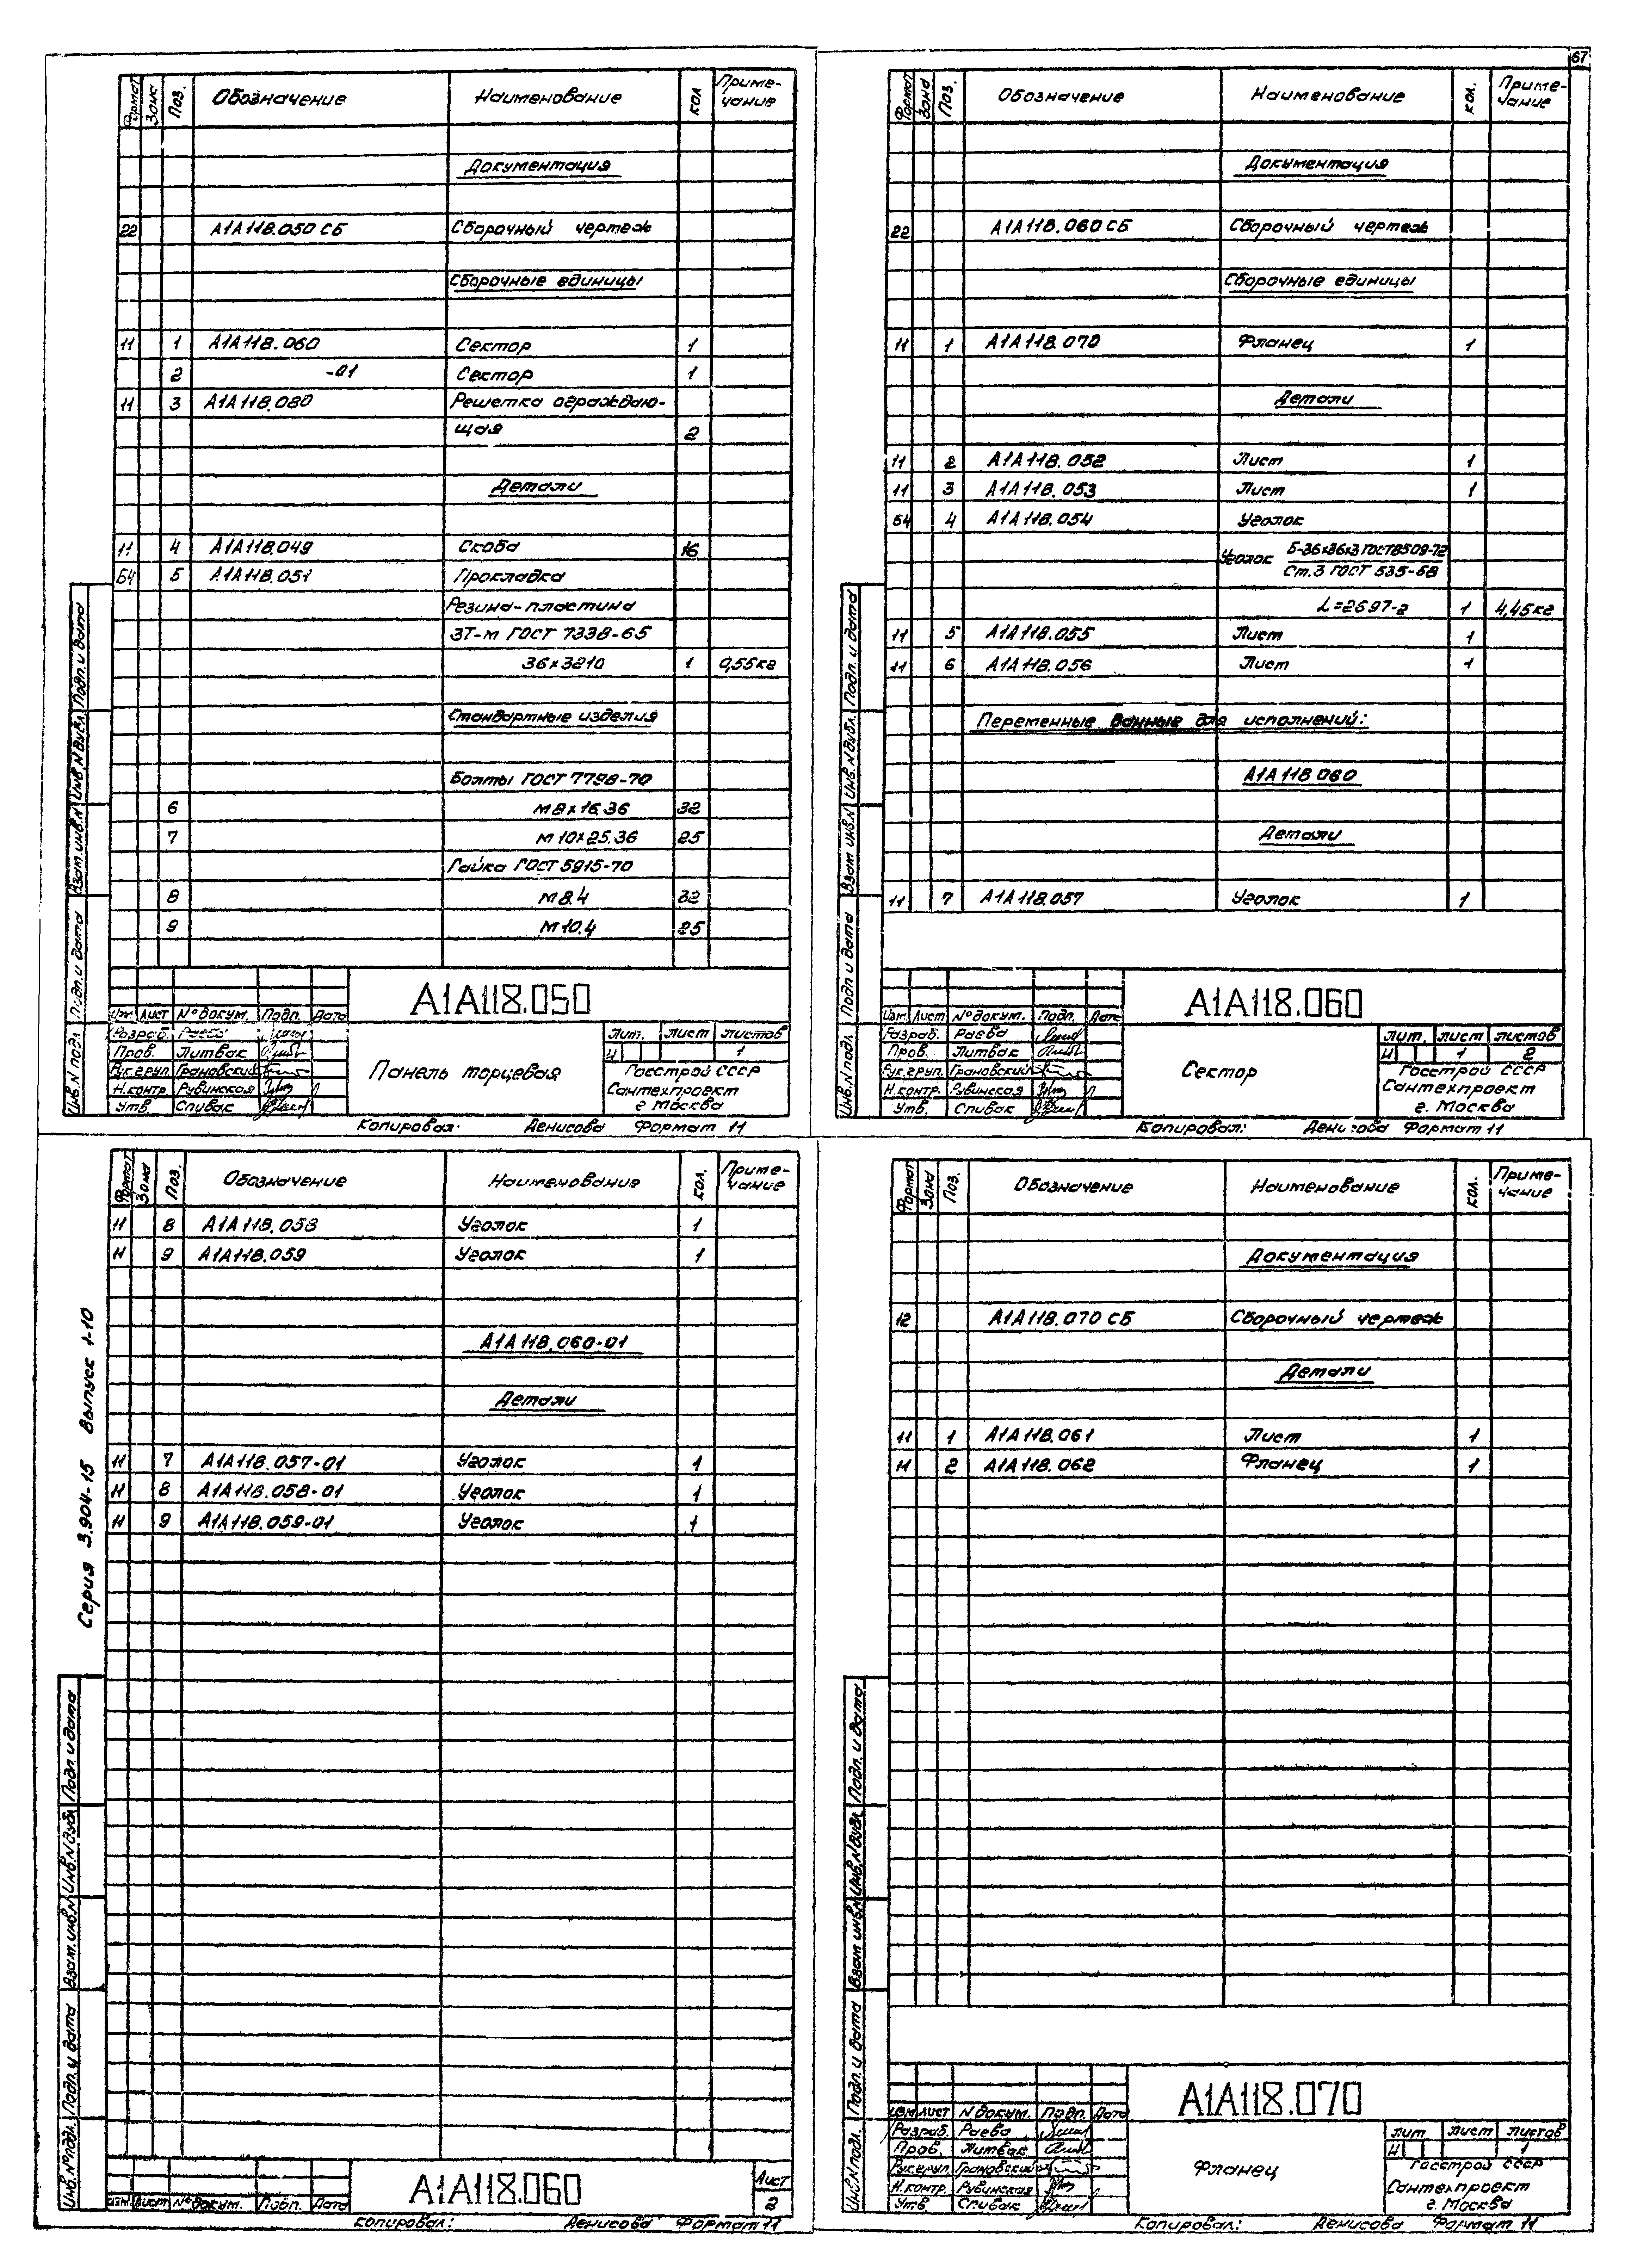 67
Формат Зона Поз. Обозначение Наименование кол Приме-чание
Документация
22 А1А118.050 СБ Сборочный чертеж
Сборочные единицы
11 1 А1А118.060 Сектор 1
2 -01 Сектор 1
11 3 А1А118.080 Решетка ограждаю-
щая 2
Детали
11 4 А1А118.049 Скоба 16
Б4 5 А1А118.051 Прокладка
Резина-пластина
3Т-м ГОСТ 7338-65
36×3210 1 0,55кг
Стандартные изделия
Болты ГОСТ 7798-70
6 М8×16.36 32
7 М10×25.36 25
Гайка ГОСТ 5915-70
8 М8.4 32
9 М10.4 25
Инв.N подл. Подп. и дата Взам.инв.N Инв.N дубл. Подп. и дата
А1А118.050
Изм. Лист N°докум. Подп. Дата
Разраб. Раева
Пров. Литвак
Рук.груп. Грановский
Н.контр. Рубинская
Утв. Спивак
Панель торцевая
Лит. лист листов
И 1
Госстрой СССР
Сантехпроект
г Москва
Копировал: Денисова Формат 11
Формат Зона Поз. Обозначение Наименование кол. Приме-чание
Документация
22 А1А118.060 СБ Сборочный чертеж
Сборочные единицы
11 1 А1А118.070 Фланец 1
Детали
11 2 А1А118.052 Лист 1
11 3 А1А118.053 Лист 1
Б4 4 А1А118.054 Уголок
Уголок Б-36×36×3 ГОСТ8509-72
Ст.3 ГОСТ 535-58
L=2697-2 1 4,45кг
11 5 А1А118.055 Лист 1
11 6 А1А118.056 Лист 1
Переменные данные для исполнений:
А1А118 060
Детали
11 7 А1А118.057 Уголок 1
Инв.N подл. Подп и дата Взам инв.N Инв.N дубл. Подп. и дата
А1А118.060
Изм. Лист N°докум. Подп. Дата
Разраб. Раева
Пров. Литвак
Рук.груп. Грановский
Н.контр. Рубинская
Утв. Спивак
Сектор
Лит. лист листов
И 1 2
Госстрой СССР
Сантехпроект
г. Москва
Копировал: Денисова Формат 11
Серия 3.904-15 Выпуск 1-10
Формат Зона Поз. Обозначение Наименование кол. Приме-чание
11 8 А1А118.058 Уголок 1
11 9 А1А118.059 Уголок 1
А1А118.060-01
Детали
11 7 А1А118.057-01 Уголок 1
11 8 А1А118.058-01 Уголок 1
11 9 А1А118.059-01 Уголок 1
Инв.N°подл. Подп. и дата Взам.инв.N Инв.N дубл Подп. и дата
Изм. Лист N°докум. Подп. Дата
А1А118.060
Лист
2
Копировал: Денисова Формат 11
Формат Зона Поз. Обозначение Наименование кол. Приме-чание
Документация
12 А1А118.070 СБ Сборочный чертеж
Детали
11 1 А1А118.061 Лист 1
11 2 А1А118.062 Фланец 1
Инв.N подл. Подп. и дата Взам инв.N Инв.N дубл Подп. и дата
А1А118.070
Изм Лист N докум. Подп. Дата
Разраб. Раева
Пров. Литвак
Рук.груп. Грановский
Н.контр. Рубинская
Утв Спивак
Фланец
Лит лист листов
И 1
Госстрой СССР
Сантехпроект
г. Москва
Копировал: Денисова Формат 11